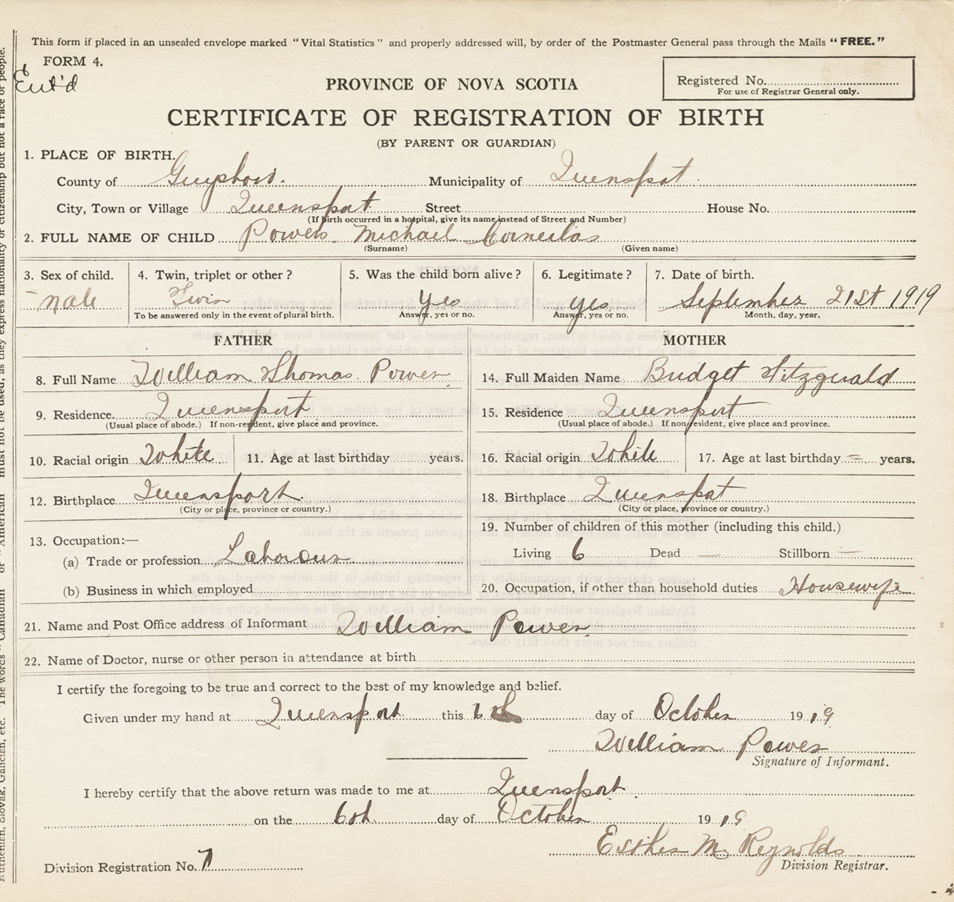 This form if placed in an unsealed envelope marked "Vital Statistics" and properly addressed will, by order of the Postmaster General pass through the Mails "FREE."
FORM 4.
Ent'd
PROVINCE OF NOVA SCOTIA
Registered No.
For use of Registrar General only.
CERTIFICATE OF REGISTRATION OF BIRTH
(BY PARENT OR GUARDIAN)
1. PLACE OF BIRTH.
County of Guysboro. Municipality of Queensport
City, Town or Village Queensport Street House No.
(If birth occurred in a hospital, give its name instead of Street and Number)
2. FULL NAME OF CHILD Power Michael Cornelas
(Surname) (Given name)
3. Sex of child. 4. Twin, triplet or other? 5. Was the child born alive? 6. Legitimate? 7. Date of birth.
male Twin Yes yes September 21st 1919
To be answered only in the event of plural birth. Answer, yes or no. Answer, yes or no. Month, day, year.
FATHER MOTHER
8. Full Name William Thomas Power 14. Full Maiden Name Bridget Fitzgerald
9. Residence. Queensport 15. Residence Queensport
(Usual place of abode.) If non-resident, give place and province. (Usual place of abode.) If non-resident, give place and province.
10. Racial origin White 11. Age at last birthday years. 16. Racial origin White 17. Age at last birthday years.
12. Birthplace Queensport. 18. Birthplace Queensport
(City or place, province or country.) (City or place, province or country.)
19. Number of children of this mother (including this child.)
13. Occupation:—
(a) Trade or profession Labourer Living 6 Dead — Stillborn —
(b) Business in which employed 20. Occupation, if other than household duties Housewife
21. Name and Post Office address of Informant William Power
22. Name of Doctor, nurse or other person in attendance at birth
I certify the foregoing to be true and correct to the best of my knowledge and belief.
Given under my hand at Queensport this 6th day of October 1919
William Power
Signature of Informant.
I hereby certify that the above return was made to me at Queensport
on the 6th day of October 1919
Esther M. Reynolds
Division Registration No. 7 Division Registrar.